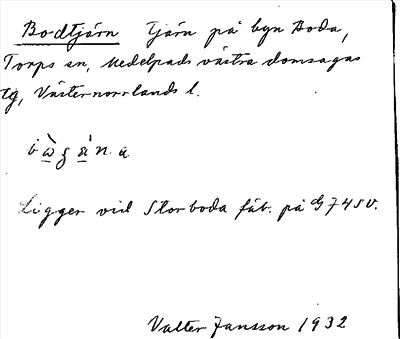 Bodtjärn Tjärn på byn Boda,
Torps sn, Medelpads västra domsagas
tg, Västernorrlands l.
Ligger vid Storboda fäb. på G 7 4 S V.
Valter Jansson 1932